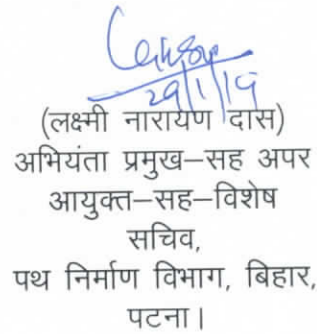 29/1/19
(लक्ष्मी नारायण दास)
अभियंता प्रमुख–सह अपर
आयुक्त–सह–विशेष
सचिव,
पथ निर्माण विभाग, बिहार,
पटना।